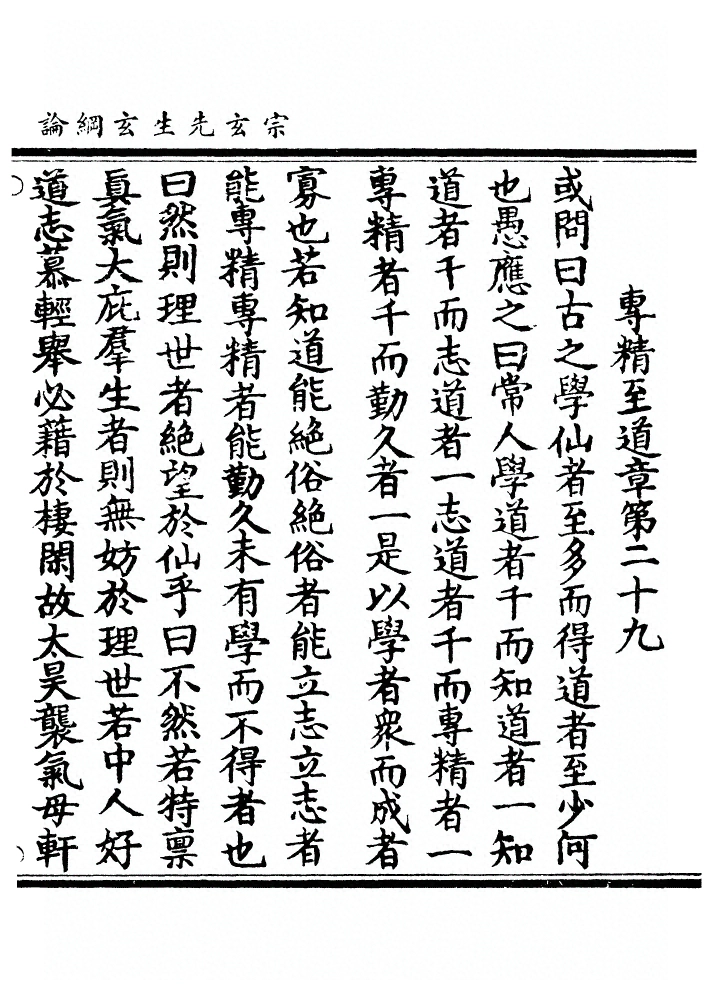 宗玄先生玄綱論
專精至道章第二十九
或問曰古之學仙者至多而得道者至少何
也愚應之曰常人學道者千而知道者一知
道者千而志道者一志道者千而專精者一
專精者千而勤久者一是以學者衆而成者
寡也若知道能絶俗絶俗者能立志立志者
能專精專精者能勤久未有學而不得者也
曰然則理世者絶望於仙乎曰不然若特禀
眞氣大庇羣生者則無妨於理世若中人好
道志慕輕舉必藉於棲閑故太昊襲氣母軒